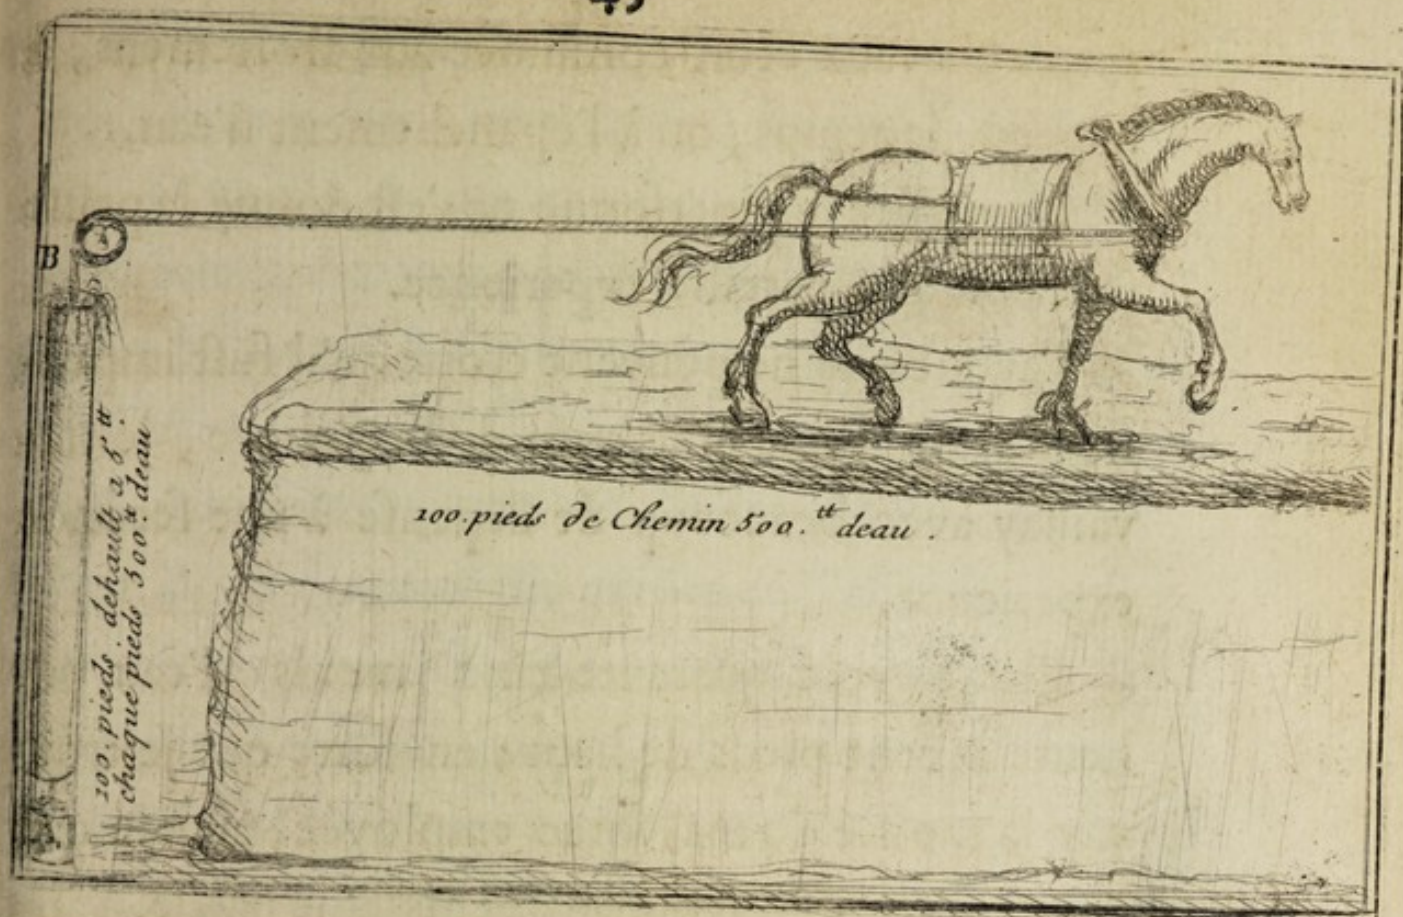 B
A
100. pieds. dehault a 5 tt
chaque pieds 500. tt deau
100. pieds de Chemin 500. tt deau.